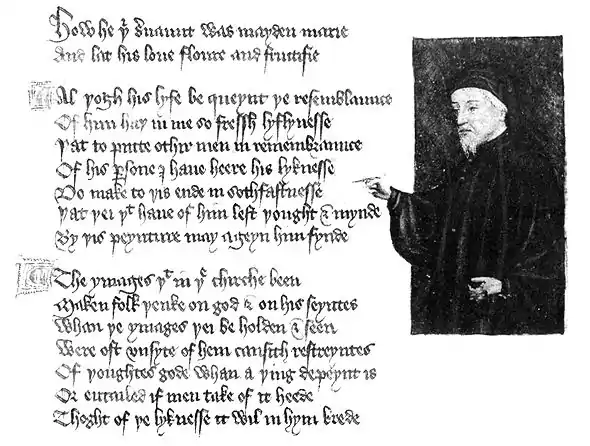 How he yͤ seruaunt was mayden marie
And lat his loue floure and fructifie
Al yogh his lyfe be queynt ye resemblaunce
Of him hay in me so fressh lyflynesse
Yat to putte othir men in remembraunce
Of his ꝑsone I haue heere his lyknesse
Do make to yis ende in sothfastnesse
Yat yei yͭ haue of him left yought & mynde
By yis peynture may ageyn him fynde
The ymages yͭ in yͤ chirche been
Maken folk yenke on god & on his seyntes
Whan ye ymages yei be holden & seen
Were oft vnsyte of hem causith restreyntes
Of youghtes gode whan a ying depeynt is
Or entailed if men take of it heede
Thoght of ye lyknesse it wil in hym brede